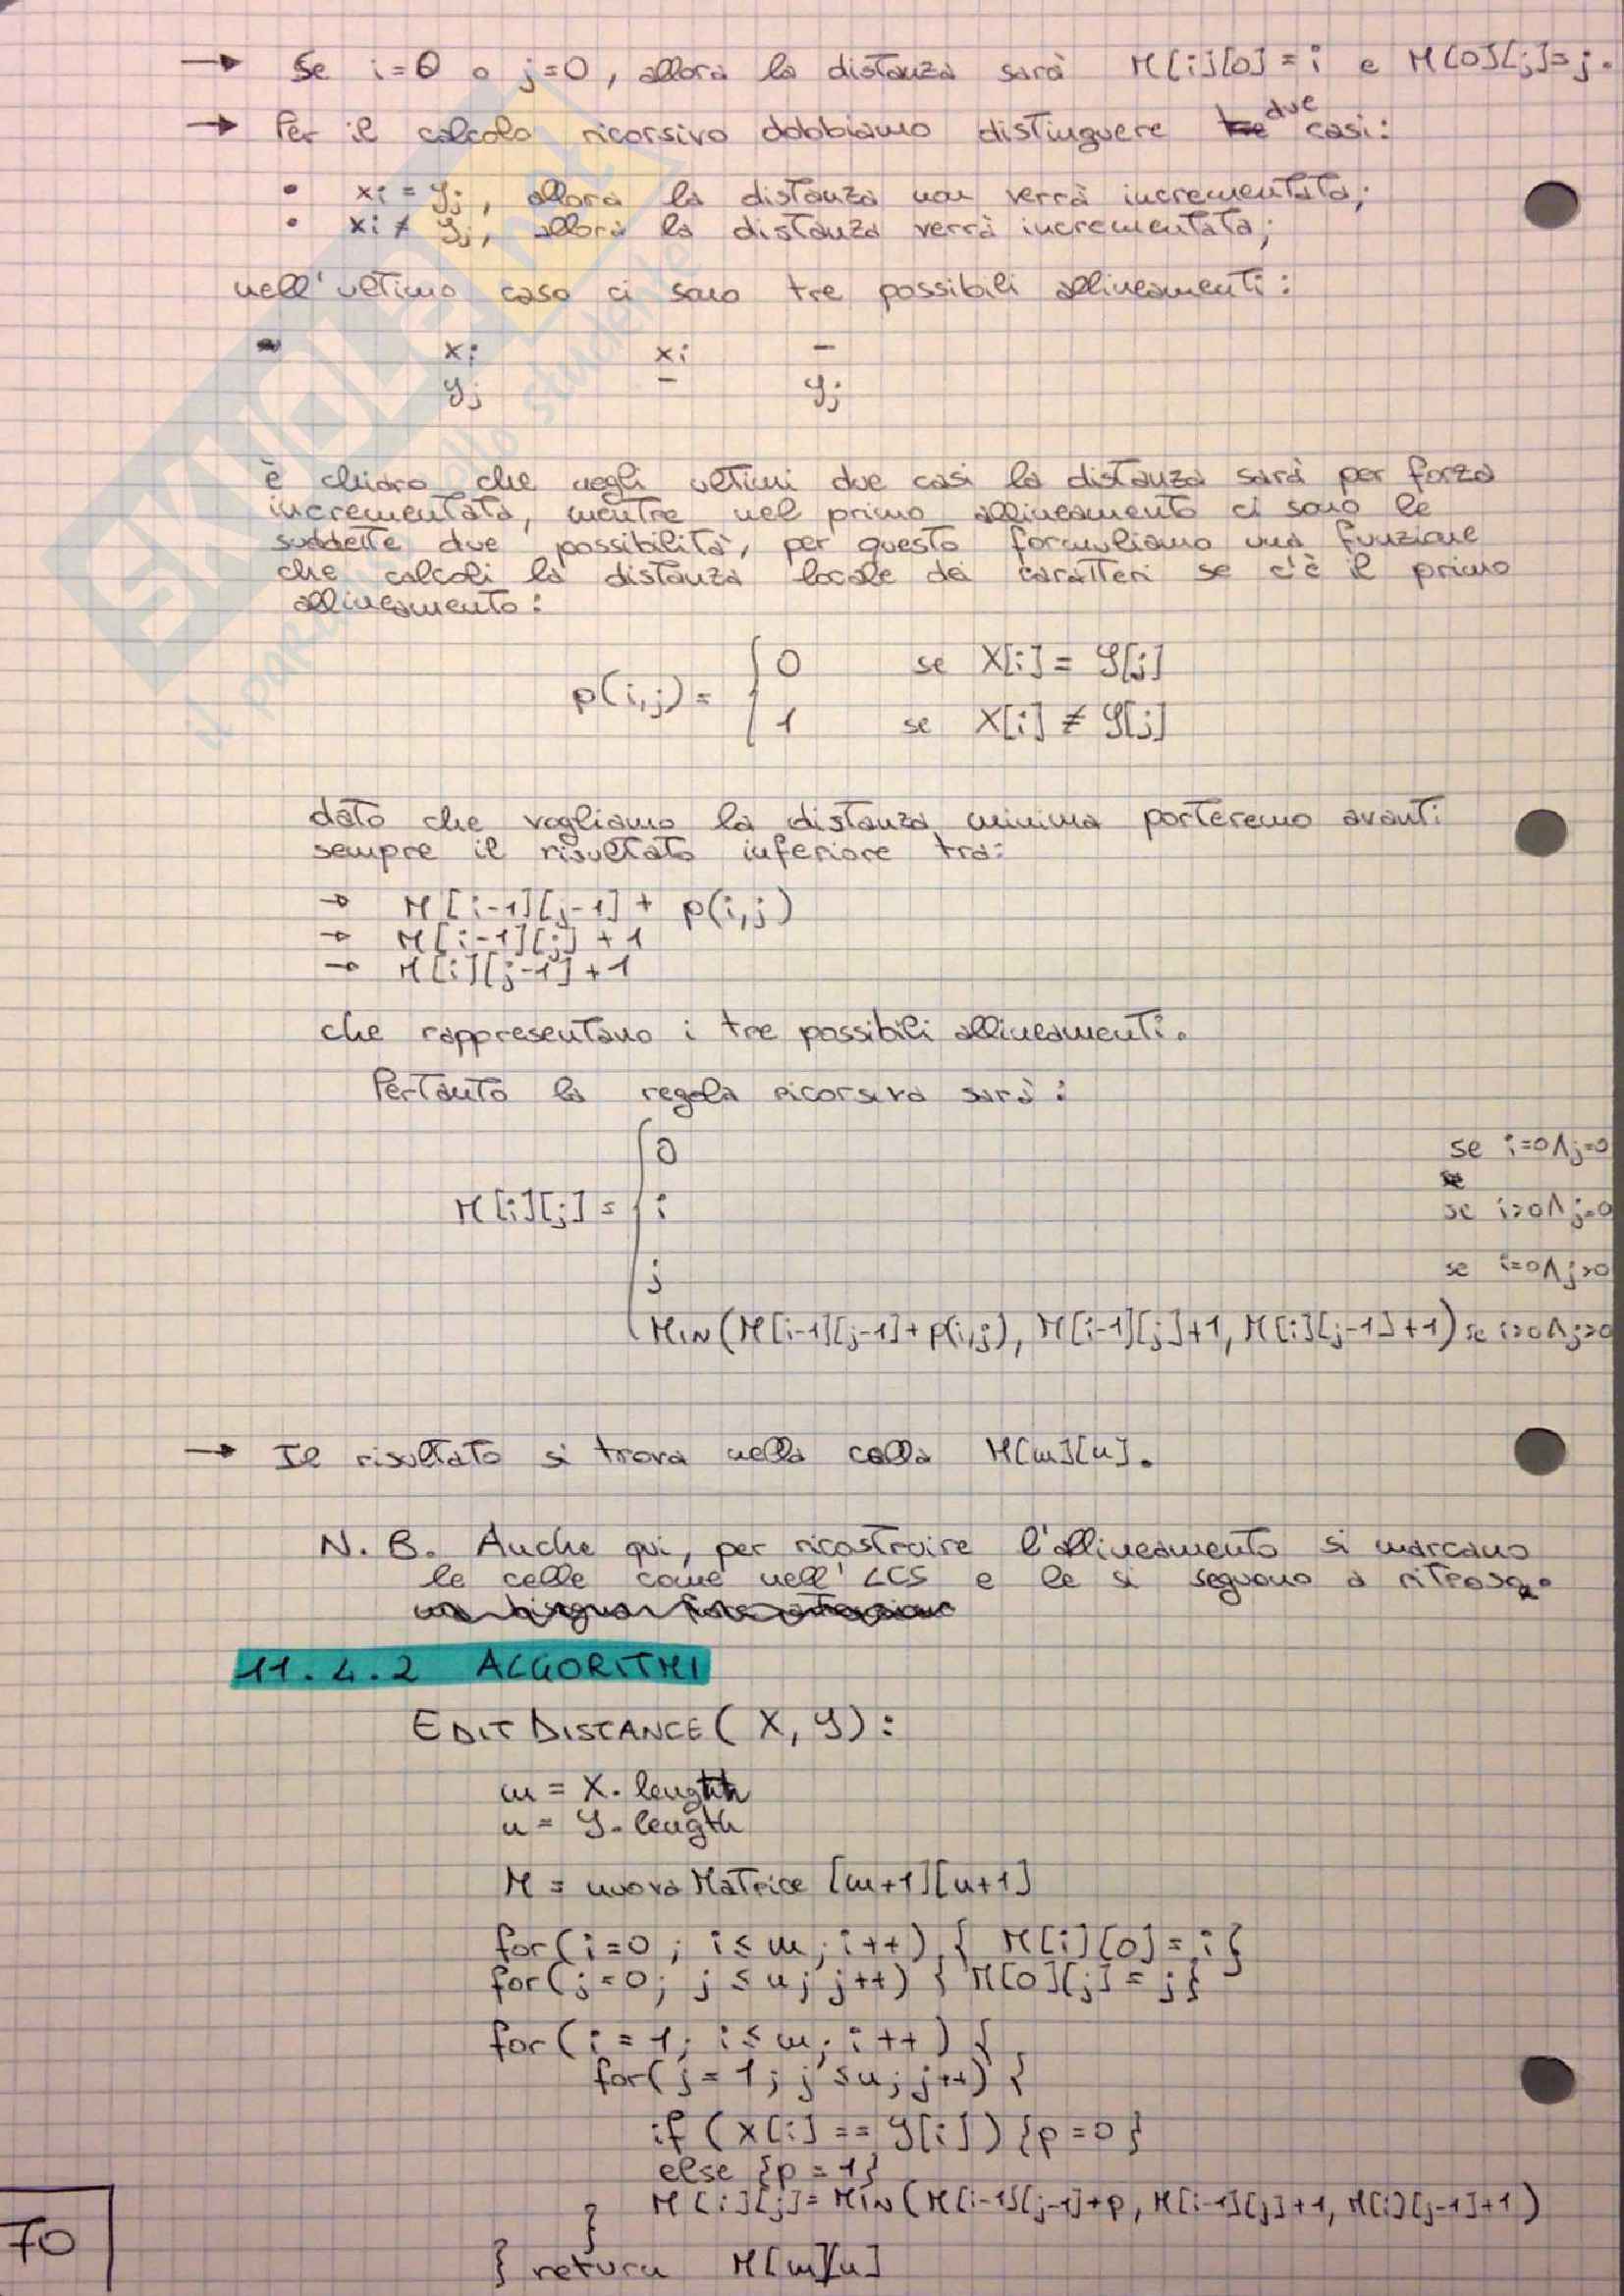 → Se i=0 o j=0, allora la distanza sarà M[i][0]=i e M[0][j]=j.
→ Per il calcolo ricorsivo dobbiamo distinguere due casi:
• xi = yj, allora la distanza non verrà incrementata;
• xi ≠ yj, allora la distanza verrà incrementata;
nell'ultimo caso ci sono tre possibili allineamenti:
xi xi -
yj - yj
è chiaro che negli ultimi due casi la distanza sarà per forza
incrementata, mentre nel primo allineamento ci sono le
suddette due possibilità, per questo formuliamo una funzione
che calcoli la distanza locale dei caratteri se c'è il primo
allineamento:
p(i,j) = { 0 se X[i] = Y[j]
1 se X[i] ≠ Y[j]
dato che vogliamo la distanza minima porteremo avanti
sempre il risultato inferiore tra:
→ M[i-1][j-1] + p(i,j)
→ M[i-1][j] + 1
→ M[i][j-1] + 1
che rappresentano i tre possibili allineamenti.
Pertanto la regola ricorsiva sarà:
0 se i=0∧j=0
M[i][j] = { i se i>0∧j=0
j se i=0∧j>0
MIN(M[i-1][j-1]+p(i,j), M[i-1][j]+1, M[i][j-1]+1) se i>0∧j>0
→ Il risultato si trova nella cella M[m][n].
N.B. Anche qui, per ricostruire l'allineamento si marcano
le celle come nell'LCS e le si seguono a ritroso.
11.4.2 ALGORITMI
EDIT DISTANCE(X, Y):
m = X.length
n = Y.length
M = nuova Matrice [m+1][n+1]
for(i=0; i≤m; i++) { M[i][0] = i }
for(j=0; j≤n; j++) { M[0][j] = j }
for(i=1; i≤m; i++) {
for(j=1; j≤n; j++) {
if (X[i] == Y[i]) {p=0}
else {p=1}
M[i][j] = MIN(M[i-1][j-1]+p, M[i-1][j]+1, M[i][j-1]+1)
}
} return M[m][n]
70